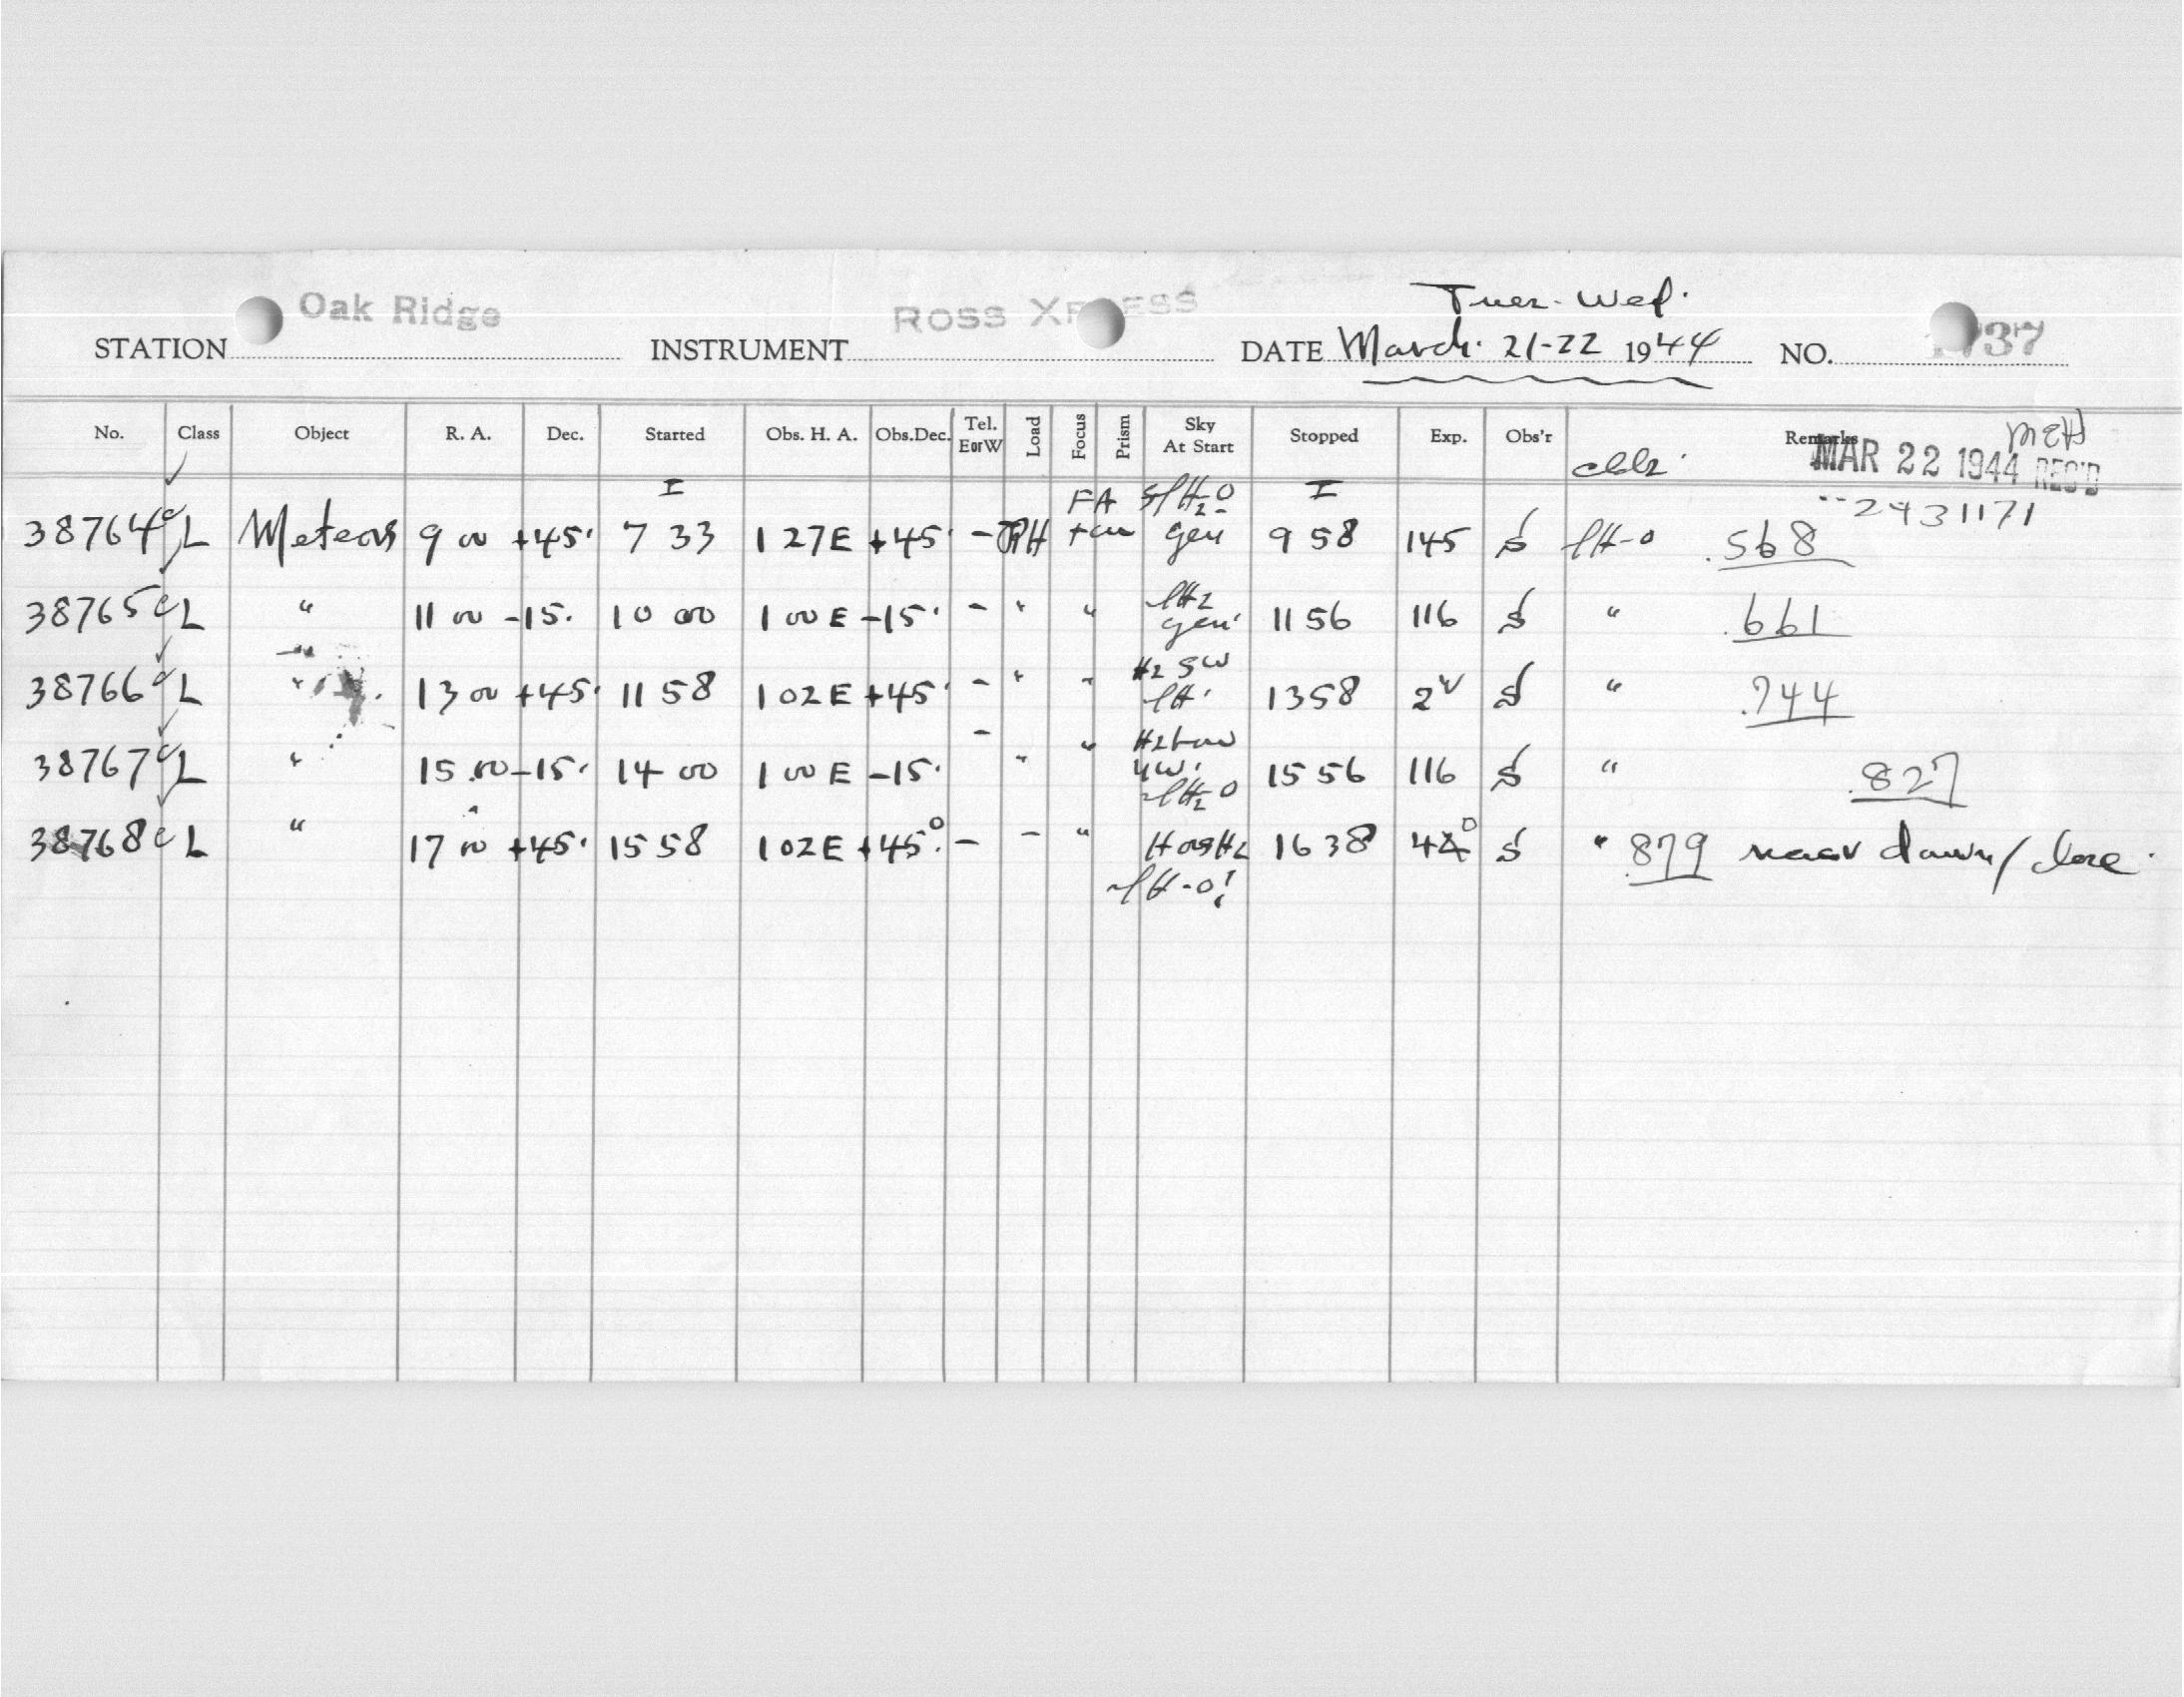 Tues - Wed.
STATION Oak Ridge INSTRUMENT ROSS XPRESS DATE March 21-22 1944 NO. 37
No. Class Object R. A. Dec. Started Obs. H. A. Obs.Dec. Tel. EorW Load Focus Prism Sky At Start Stopped Exp. Obs'r Remarks
MAR 22 1944 REC'D
I FA I 2431171
38764 c L Meteors 9 00 +45° 7 33 1 27E +45° - gen 9 58 145 S .568
38765 c L " 11 00 -15° 10 00 1 00 E -15° - " " gen 11 56 116 S " .661
38766 c L " 13 00 +45° 11 58 1 02E +45° - " " H2 SW 13 58 2 S " .744
38767 c L " 15 00 -15° 14 00 1 00 E -15° - " " 15 56 116 S " .827
38768 c L " 17 00 +45° 15 58 1 02E +45° - - " 16 38 40 S " .879 near dawn / close